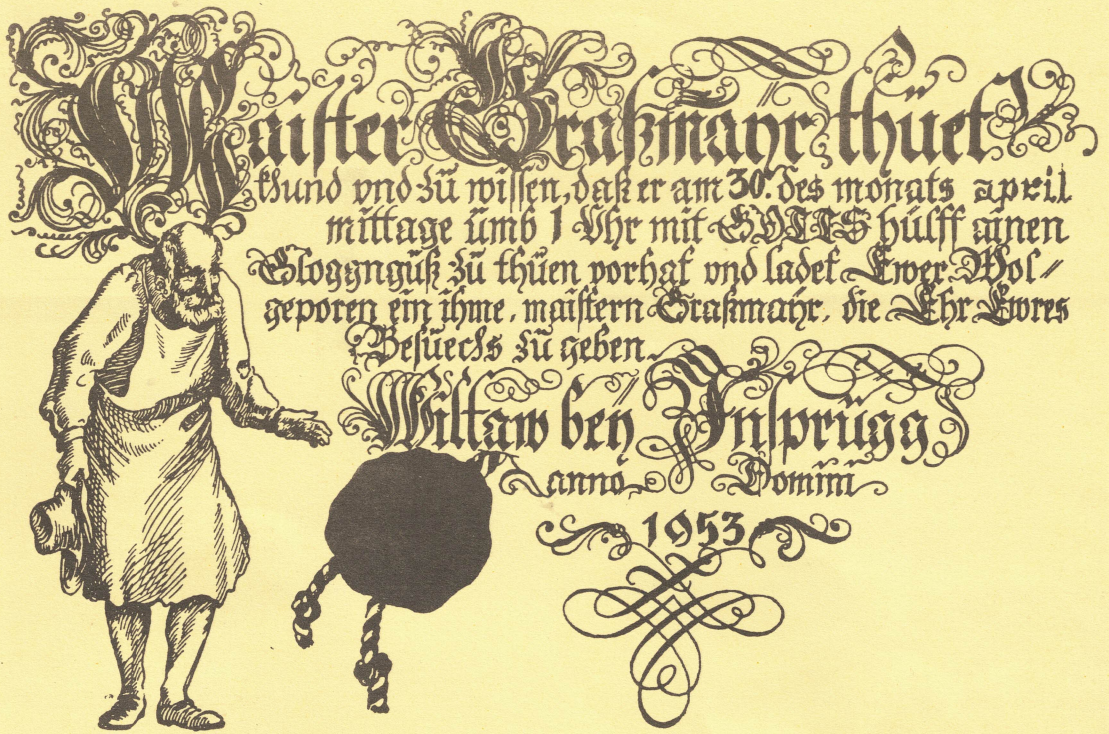 Maister Graßmayr thüet
khund vnd zü wissen, daß er am 30. des monats april
mittage ümb 1 Vhr mit GOTTS hülff ainen
Gloggngüß zü thüen vorhat vnd ladet Ewer Wol⸗
geporen ein ihme, maistern Graßmayr, die Ehr Ewres
Besüechs zü geben.
Wiltaw beÿ Ynsprügg
anno Domini
1953